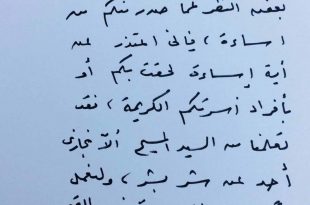 بغض النظر عما صدر منكم من
اساءة ، فإنى اعتذر عن
أية إساءة لحقت بكم أو
بأفراد أسرتكم الكريمة ، فقد
تعلمنا من السيد المسيح ألا نجازى
أحد عن شر بشر ، ولنعمل